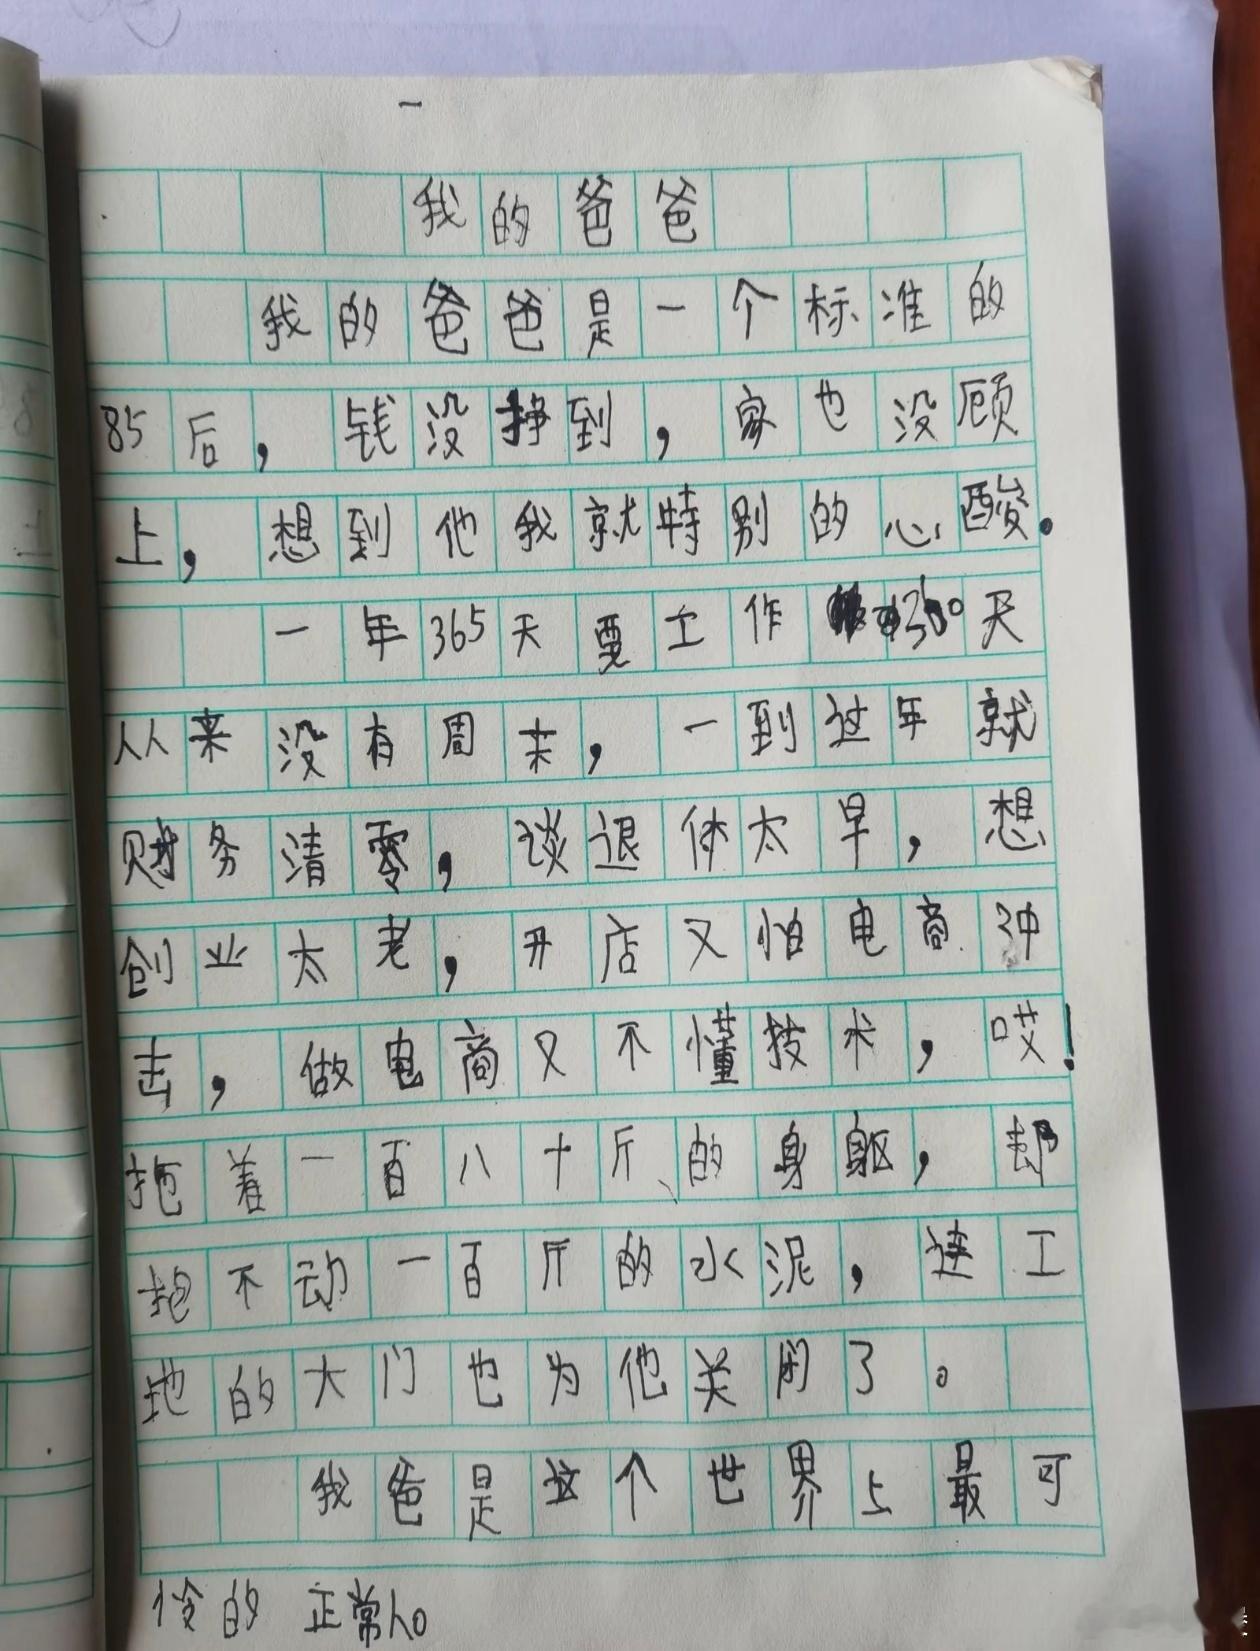 我的爸爸
我的爸爸是一个标准的
85后，钱没挣到，家也没顾
上，想到他我就特别的心酸。
一年365天要工作350天
从来没有周末，一到过年就
财务清零，谈退休太早，想
创业太老，开店又怕电商冲
击，做电商又不懂技术，哎!
拖着一百八十斤的身躯，却
抱不动一百斤的水泥，连工
地的大门也为他关闭了。
我爸是这个世界上最可
怜的 正常人。